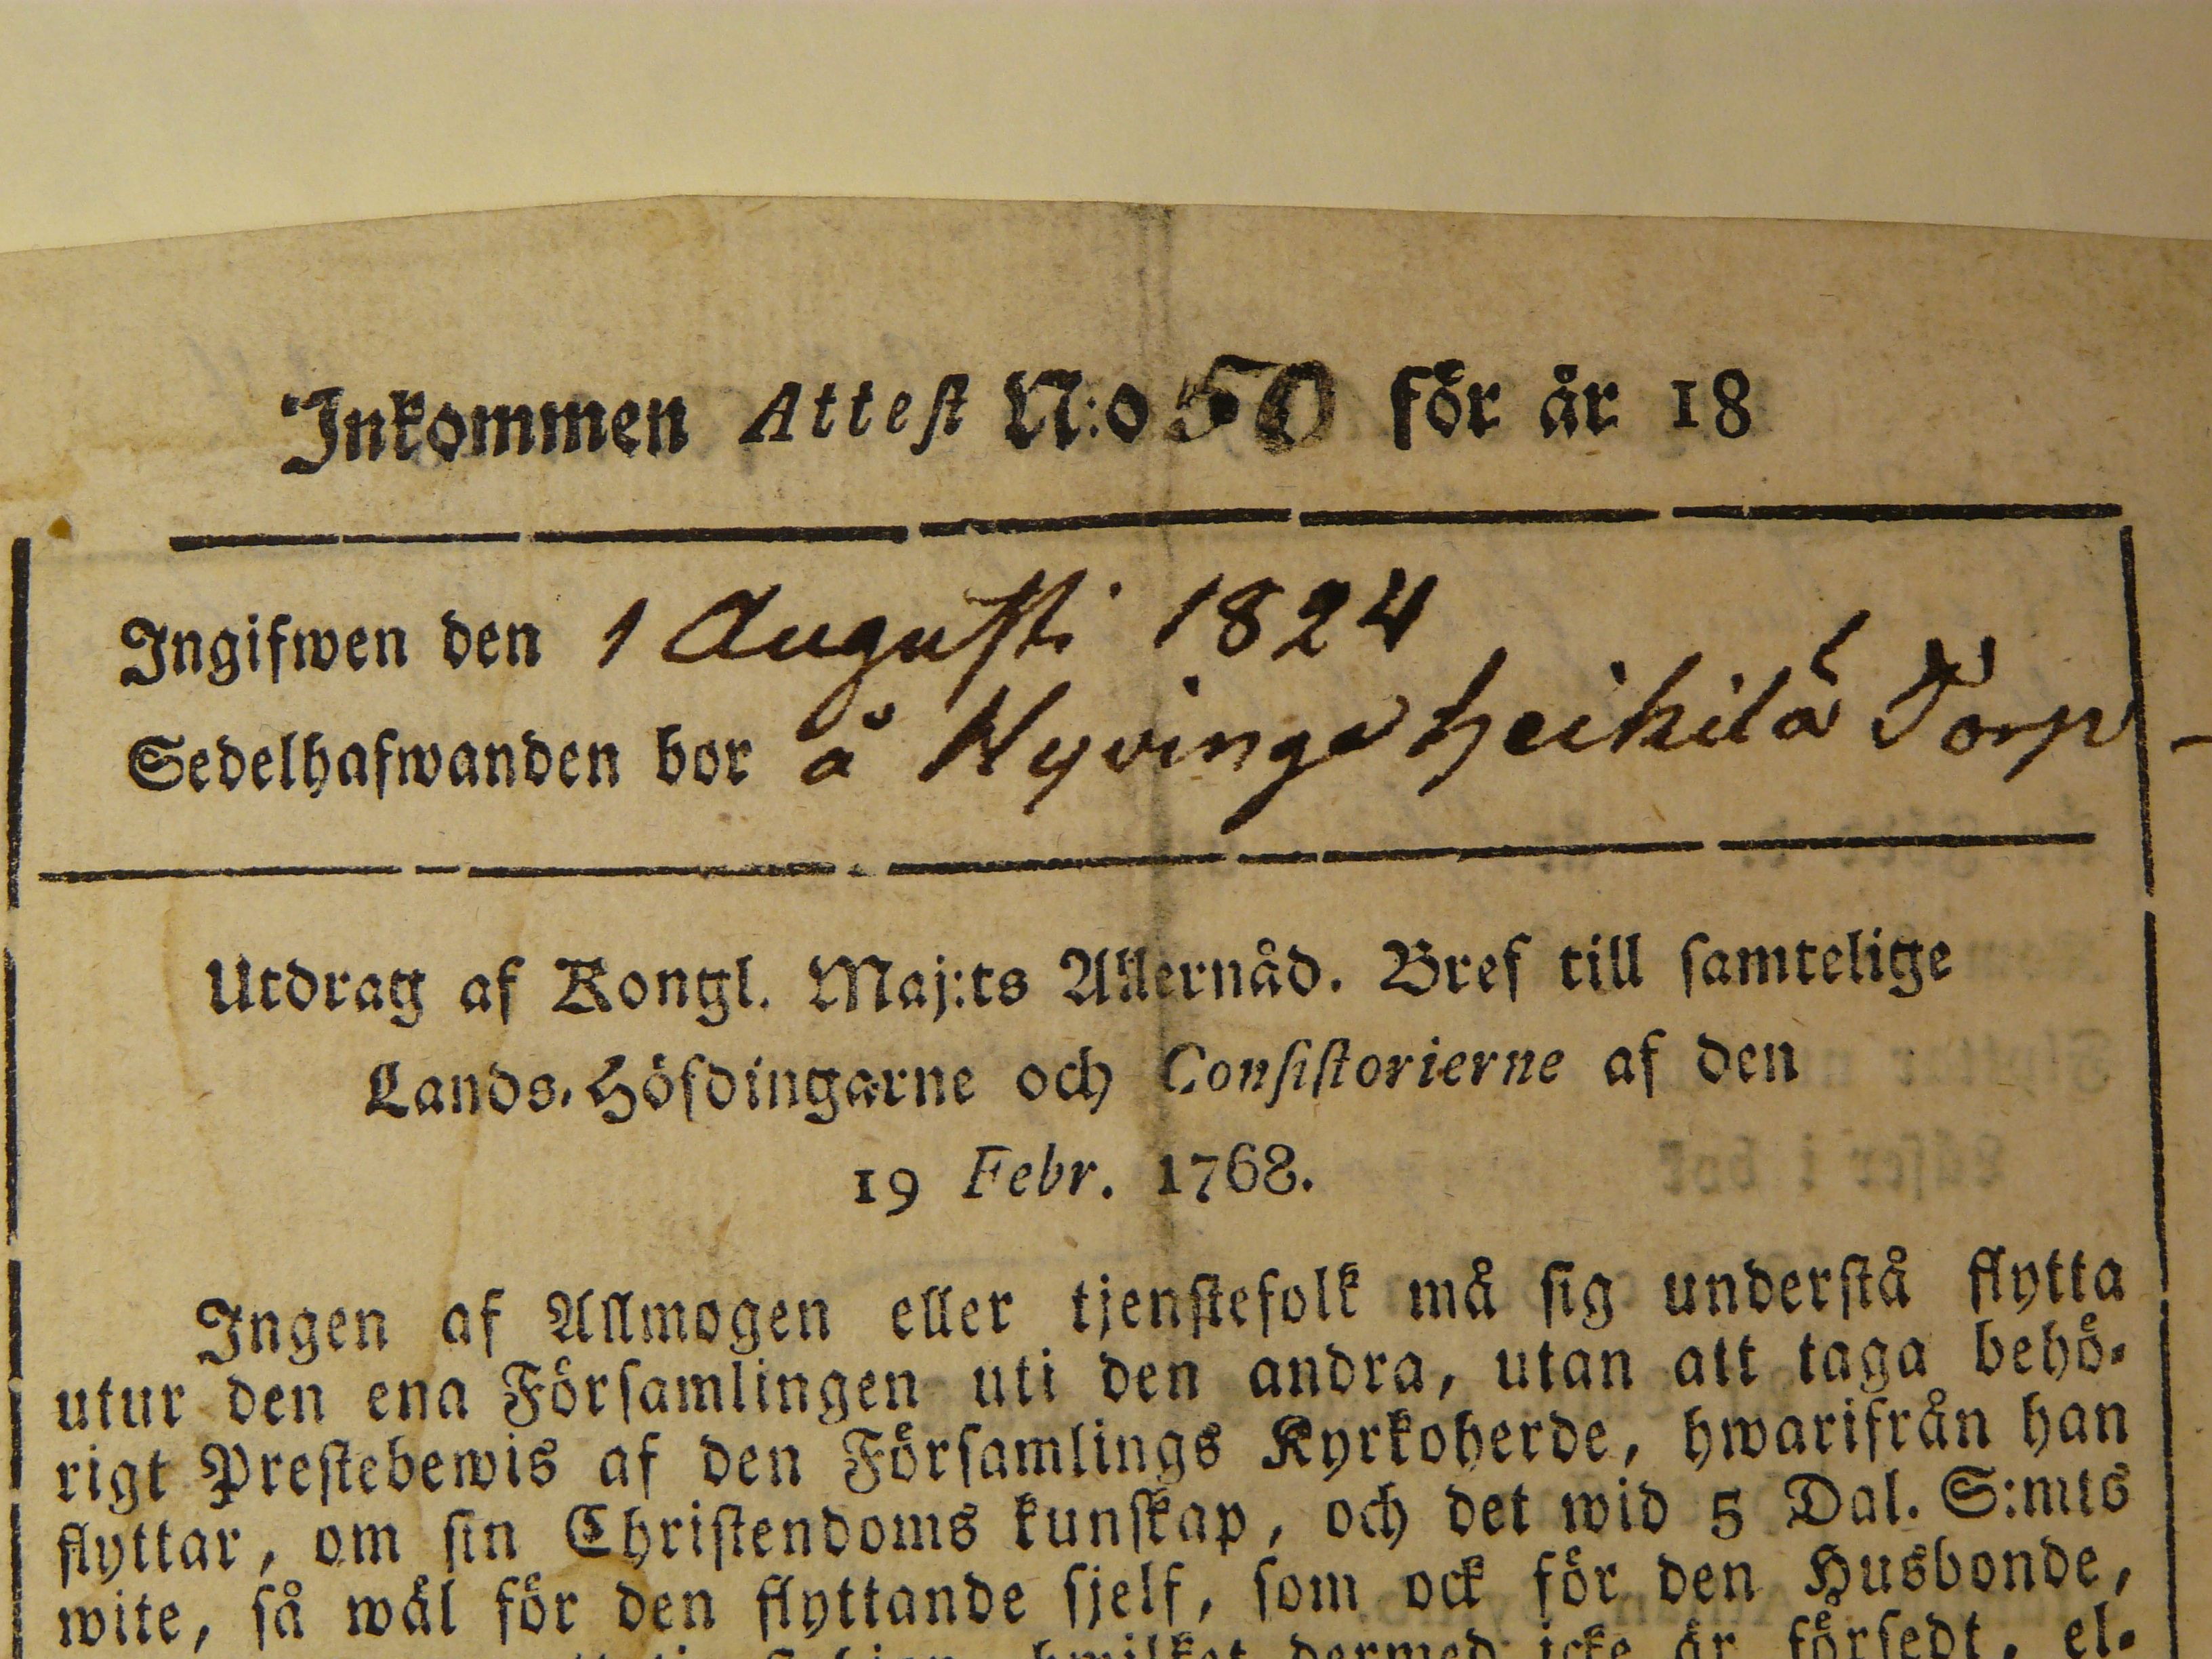 Inkommen Attest N:o 50 för år 18
Ingifwen den 1 Augusti 1824
Sedelhafwanden bor å Nyvinge Heikilä Torp
Utdrag af Kongl. Maj:ts Allernåd. Bref till samtelige
Lands-Höfdingarne och Consistorierne af den
19 Febr. 1768.
Ingen af Allmogen eller tjenstefolk må sig understå flytta
utur den ena Församlingen uti den andra, utan att taga behö-
rigt Prestebewis af den Församlings Kyrkoherde, hwarifrån han
flyttar, om sin Christendoms kunskap, och det wid 5 Dal. S:mts
wite, så wäl för den flyttande sjelf, som ock för den Husbonde,
hwilket dermed icke är försedt, el-